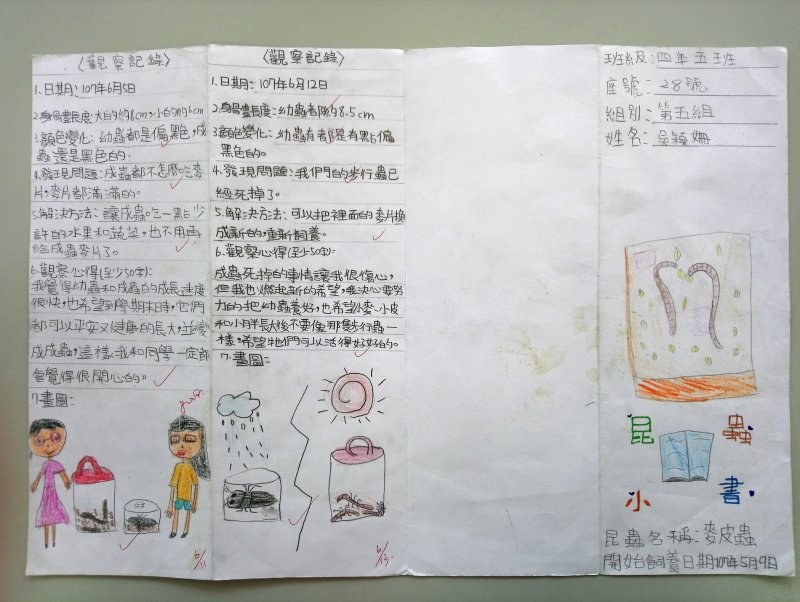 〈觀察記錄〉
1.日期:107年6月5日
2.身體長度:大白約8cm,小白約6cm
3.顏色變化:幼蟲都是偏黑色,成
蟲還是黑色的。
4.發現問題:成蟲都不怎麼吃麥
片,麥片都滿滿的。
5.解決方法:讓成蟲吃一點少
許的水果和蔬菜,也不用再
給成蟲麥片了。
6.觀察心得(至少50字):
我覺得幼蟲和成蟲的成長速度
很快,也希望到學期末時,它們
都可以平安又健康的長大,並變
成成蟲,這樣我和同學一定都
會覺得很開心的。
7.畫圖:
6/11
〈觀察記錄〉
1.日期:107年6月12日
2.身體長度:幼蟲都約8.5cm
3.顏色變化:幼蟲有都是有點偏
黑色的。
4.發現問題:我們的步行蟲已
經死掉了。
5.解決方法:可以把裡面的麥片換
成新的,重新飼養。
6.觀察心得(至少50字):
成蟲死掉的事情讓我很傷心,
但我也燃起新的希望,我決心要努
力的把幼蟲養好,也希望小麥、小皮
和小胖長大後不要像那隻步行蟲一
樣,希望牠們可以活得好好的。
7.畫圖:
6/13
班級:四年五班
座號:28號
組別:第五組
姓名:吳穎姍
昆蟲
小書
昆蟲名稱:麥皮蟲
開始飼養日期:107年5月9日